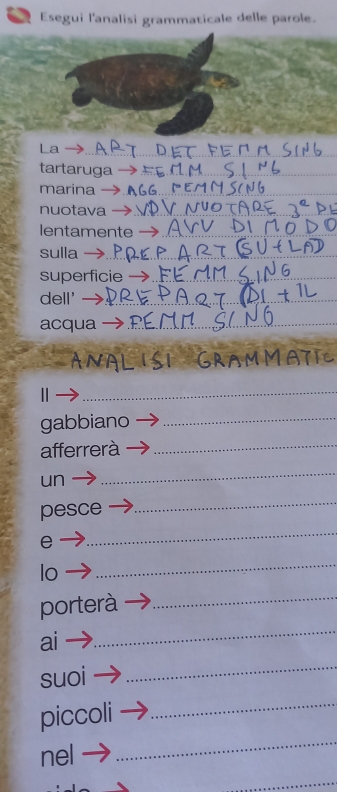 Esegui l'analisi grammaticale delle parole.
La → ART DET FEMM SING
tartaruga → FEMM SING
marina → AGG FEMM SING
nuotava → NUOTARE 3ª
lentamente → AVV DI MODO
sulla → PREP ART (SU+LA)
superficie → FEMM SING
dell' → PREP ART (DI + IL
acqua → FEMM SING
ANALISI GRAMMATIC
Il →
gabbiano →
afferrerà →
un →
pesce →
e →
lo →
porterà →
ai →
suoi →
piccoli →
nel →